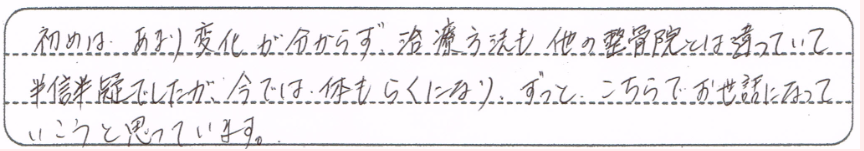 初めは、あまり変化が分からず、治療方法も他の整骨院とは違っていて
半信半疑でしたが、今では、体もらくになり、ずっと、こちらでお世話になって
いこうと思っています。